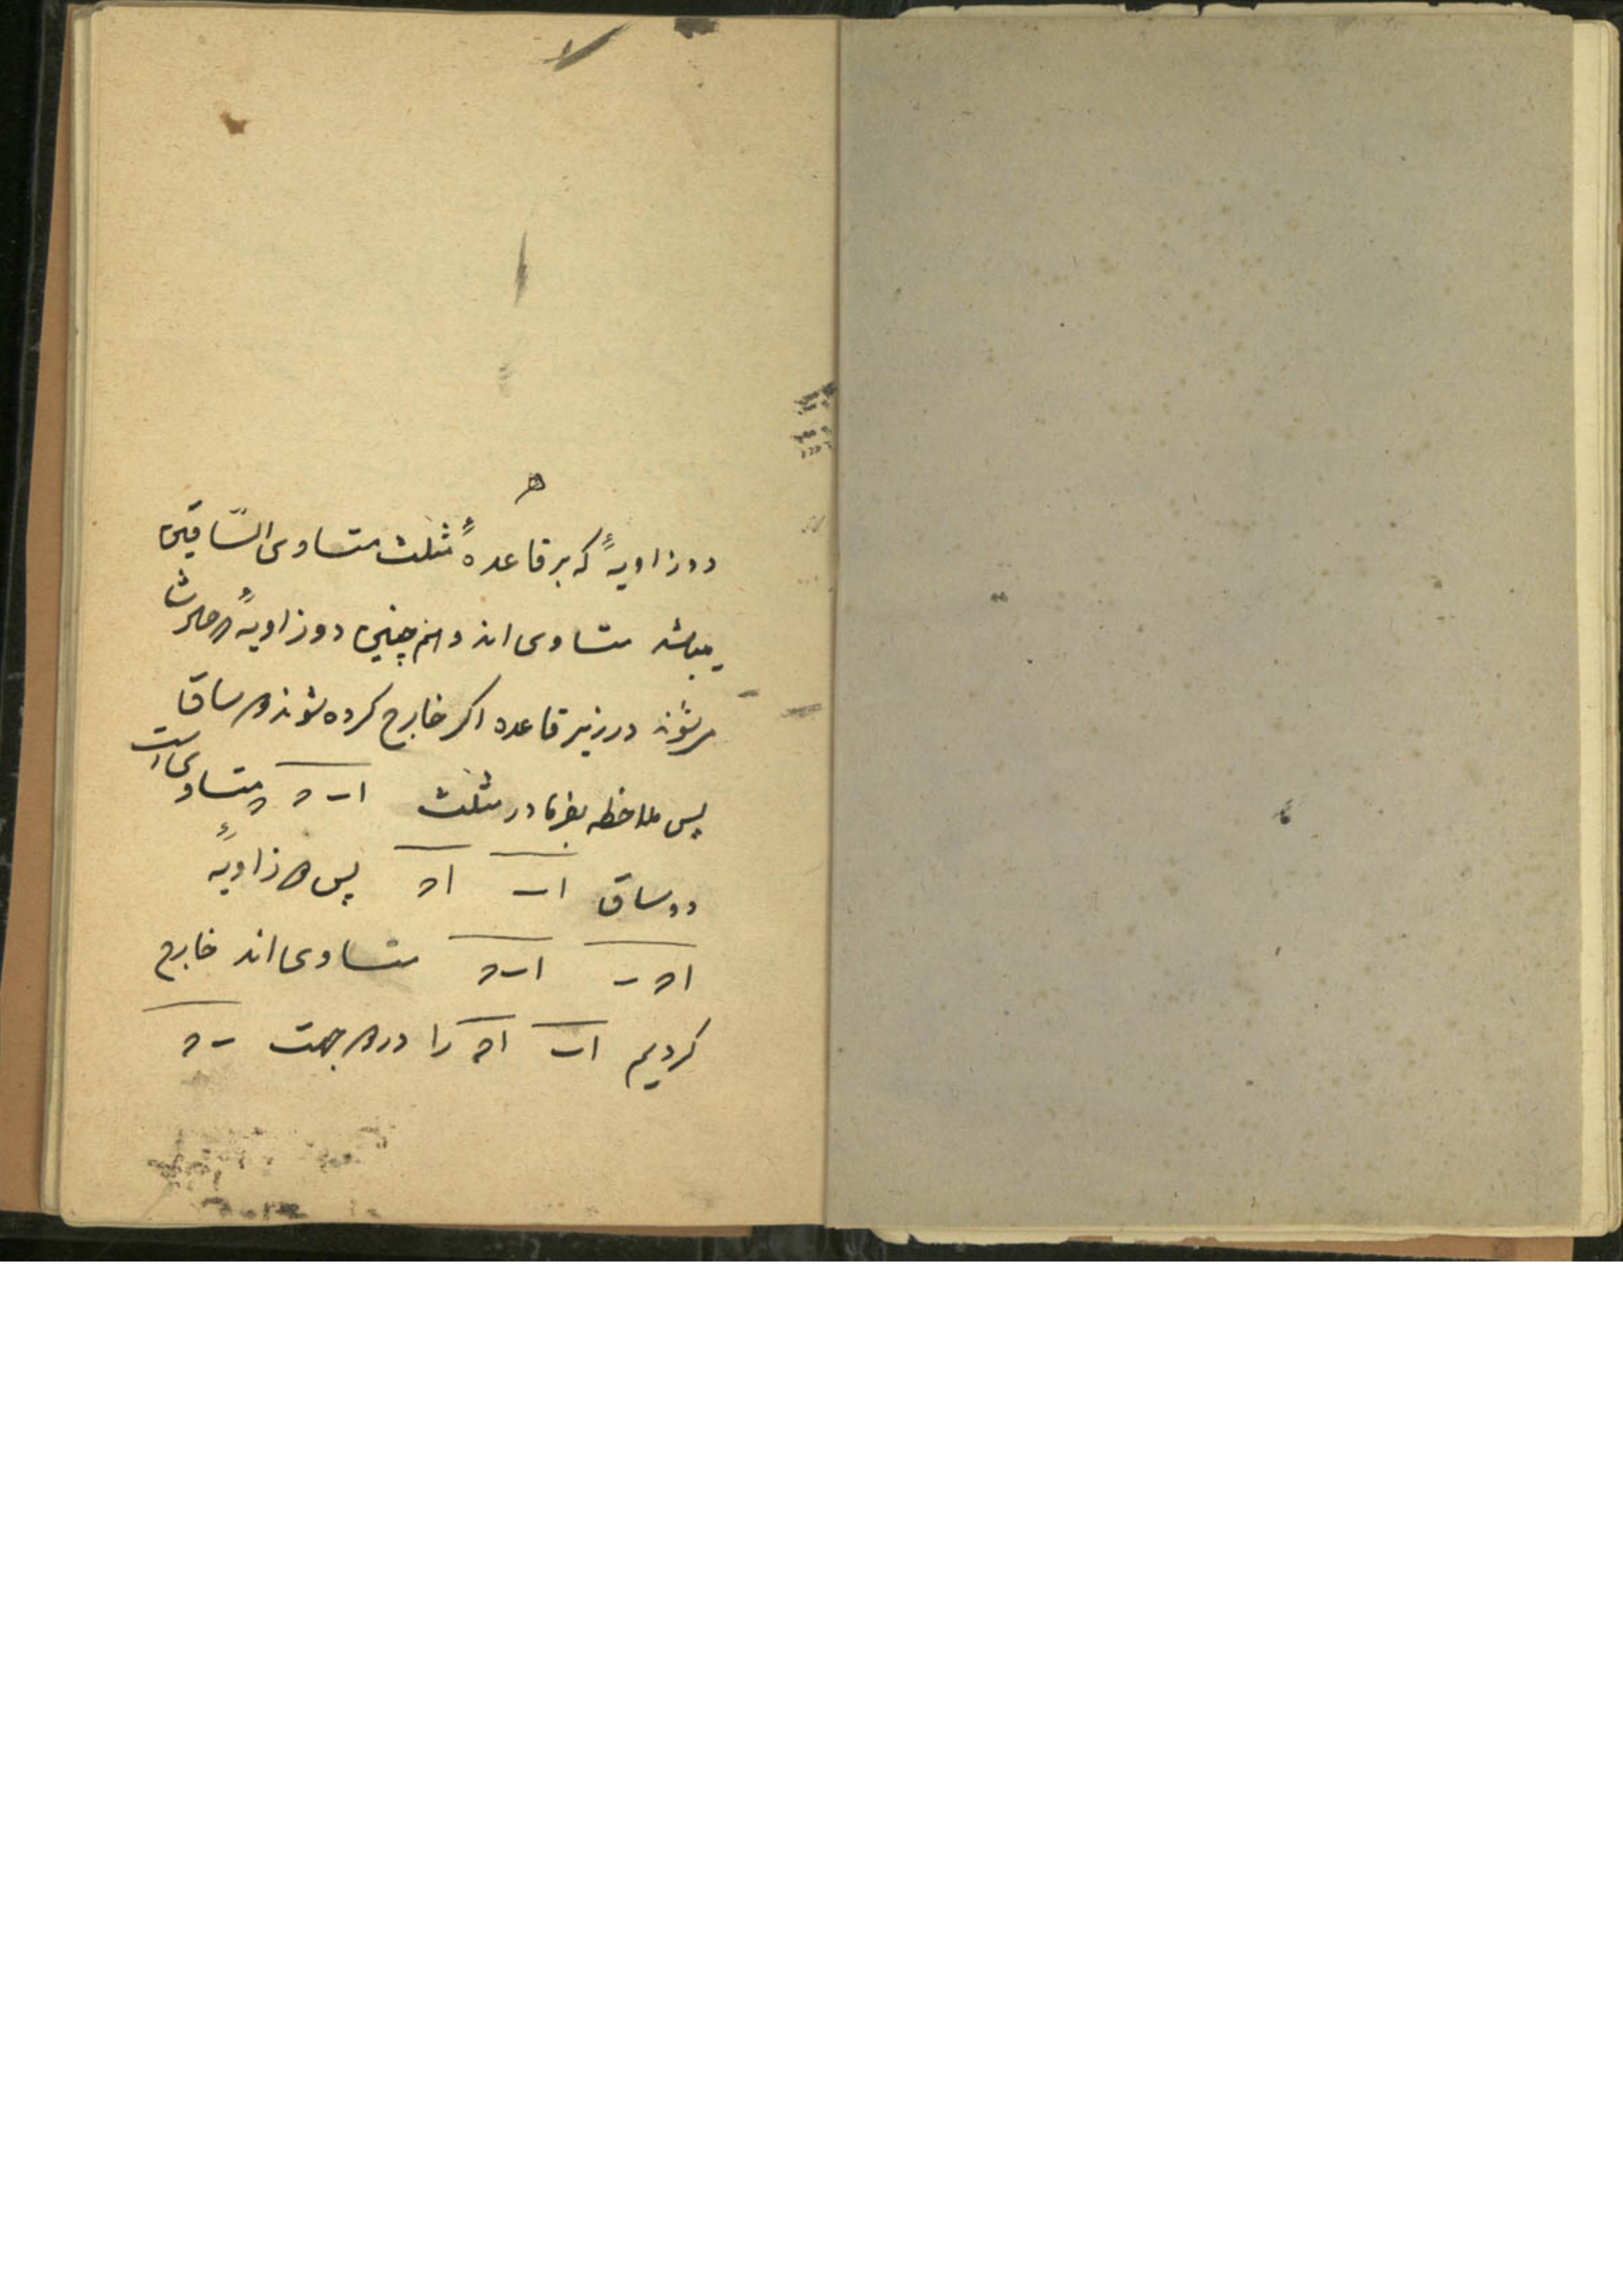 ه
دو زاویهٔ که بر قاعدهٔ مثلث متساوی السّاقین
میباشد متساوی اند و همچنین دو زاویهٔ
میشوند در زیر قاعده اکر خارج کرده شوند هر ساق
پس ملاحظه بفرما در مثلث اب‍ح متساوی است
دو ساق اب‍ اح پس دو زاویهٔ
اح‍ب اب‍ح متساوی اند خارج
کردیم اب‍ اح را در دو جهت ب‍ح